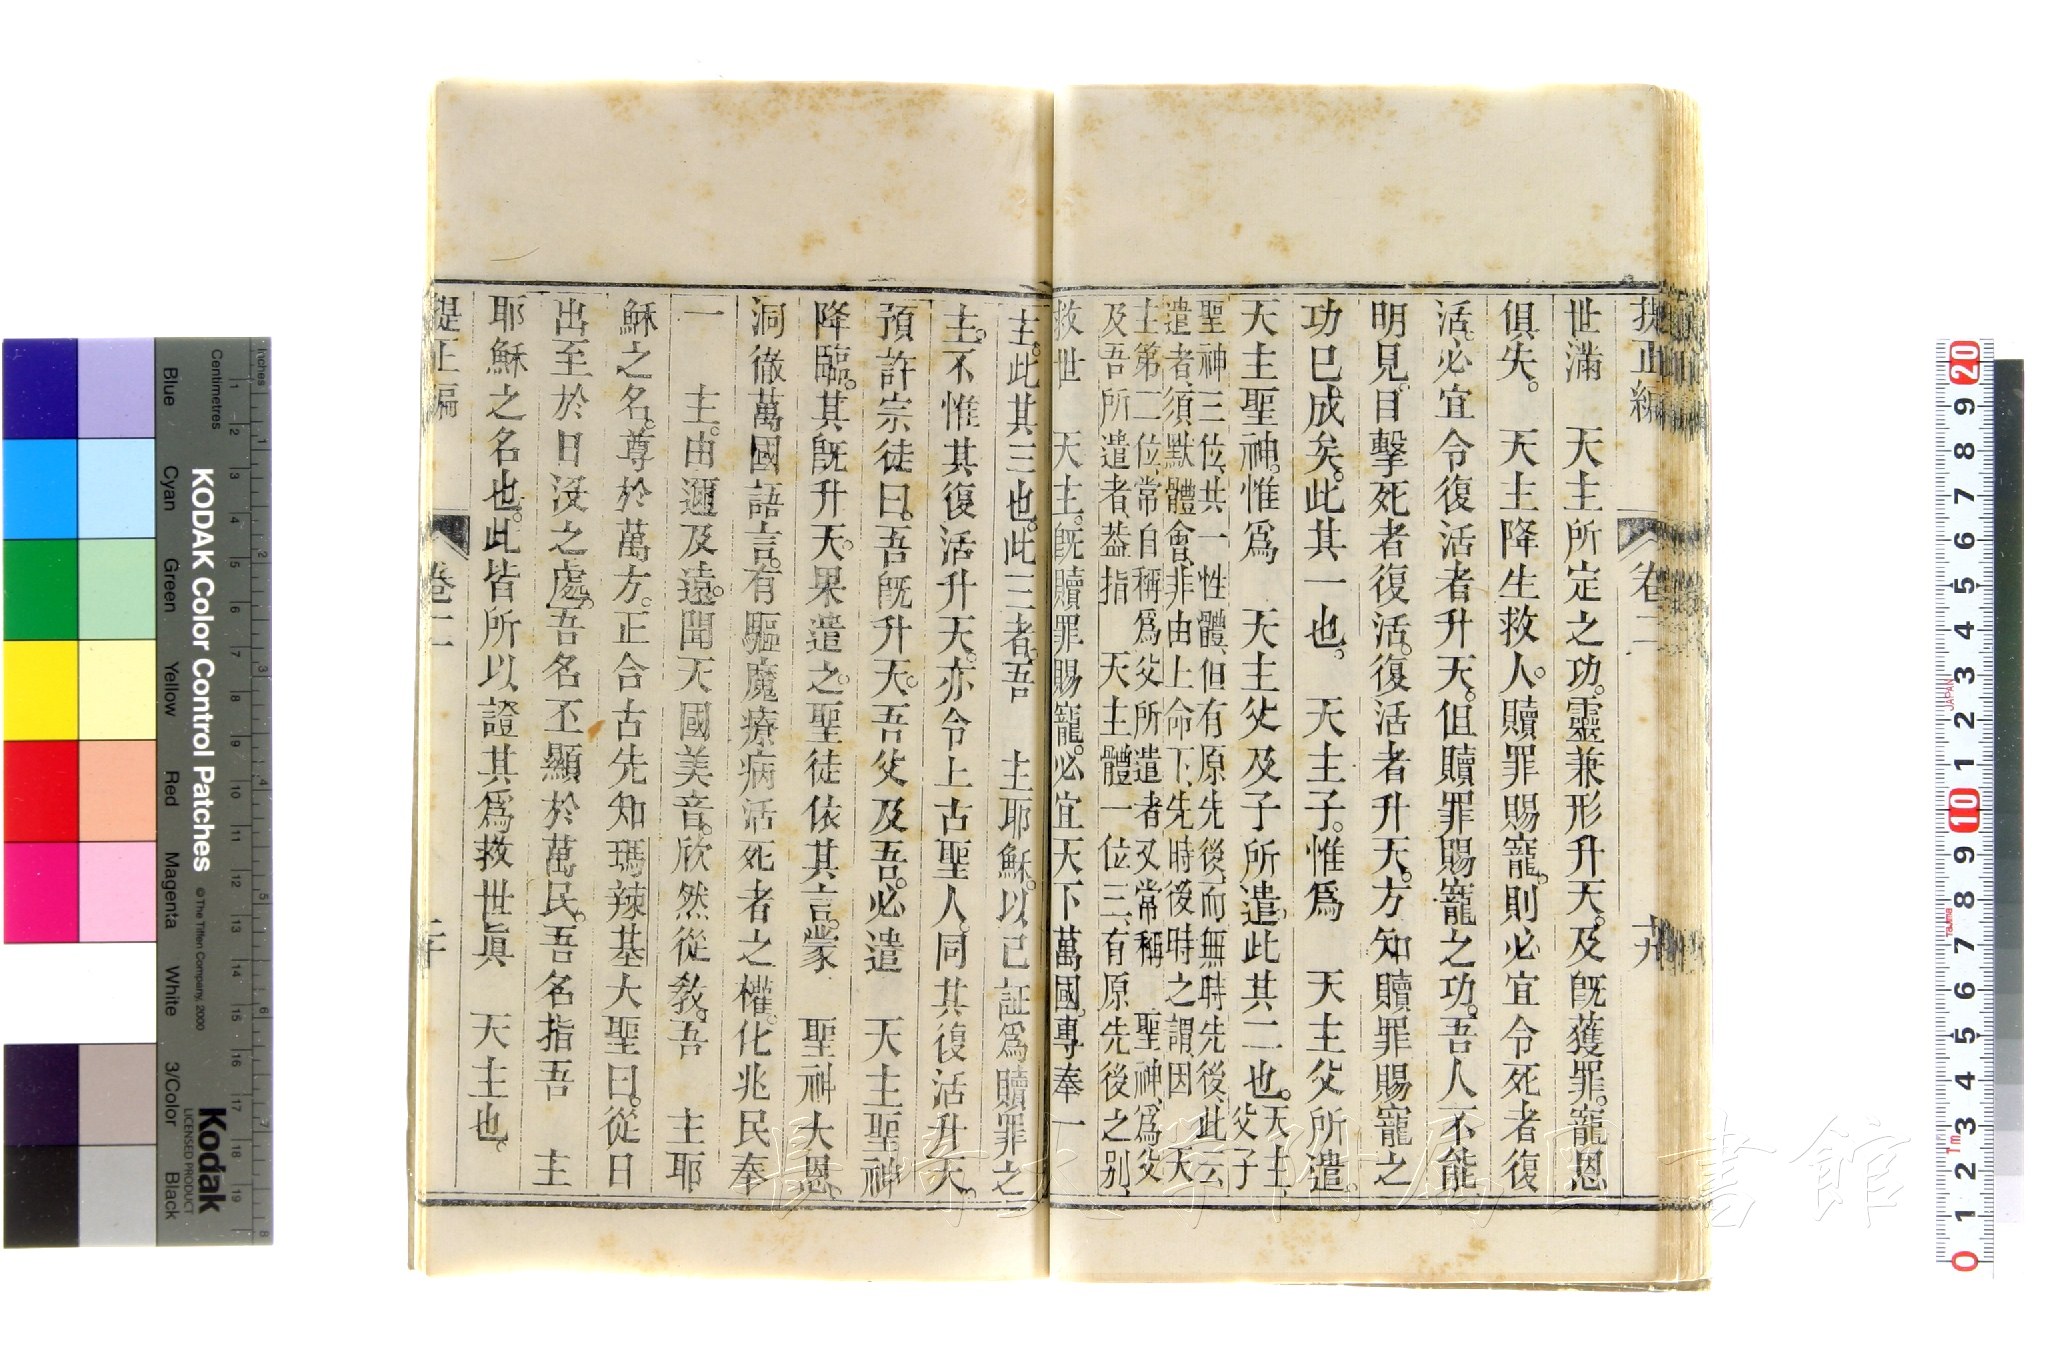 提正編　卷二　十九
世滿　天主所定之功。靈兼形升天。及旣獲罪。寵恩
俱失。　天主降生救人。贖罪賜寵。則必宜令死者復
活。必宜令復活者升天。但贖罪賜寵之功。吾人不能
明見。目擊死者復活。復活者升天。方知贖罪賜寵之
功已成矣。此其一也。　天主子。惟爲　天主父所遣。
天主聖神。惟爲　天主父及子所遣。此其二也。
天主、父子
聖神三位、共一性體、但有原先後、而無時先後、此云
遣者、須默體會、非由上命下、先時後時之謂、因　天
主第二位、常自稱爲父所遣者、又常稱　聖神、爲父
及吾所遣者、葢指　天主體一位三、有原先後之别、
救世　天主。旣贖罪賜寵。必宜天下萬國。專奉一
主。此其三也。此三者。吾　主耶穌。以已証爲贖罪之
主。不惟其復活升天。亦令上古聖人。同其復活升天。
預許宗徒曰。吾旣升天。吾父及吾。必遣　天主聖神
降臨。其旣升天。果遣之。聖徒依其言。蒙　聖神大恩。
洞徹萬國語言。有驅魔療病活死者之權。化兆民奉
一　主。由邇及遠。聞天國美音。欣然從教。吾　主耶
穌之名。尊於萬方。正合古先知瑪辣基大聖曰。從日
出至於日沒之處。吾名丕顯於萬民。吾名指吾　主
耶穌之名也。此皆所以證其爲救世眞　天主也。
提正編　卷二　二十
KODAK Color Control Patches
© The Tiffen Company, 2000
Kodak
LICENSED PRODUCT
Inches
Centimetres
Blue
Cyan
Green
Yellow
Red
Magenta
White
3/Color
Black
長崎大学附属図書館
JAPAN
Tajima